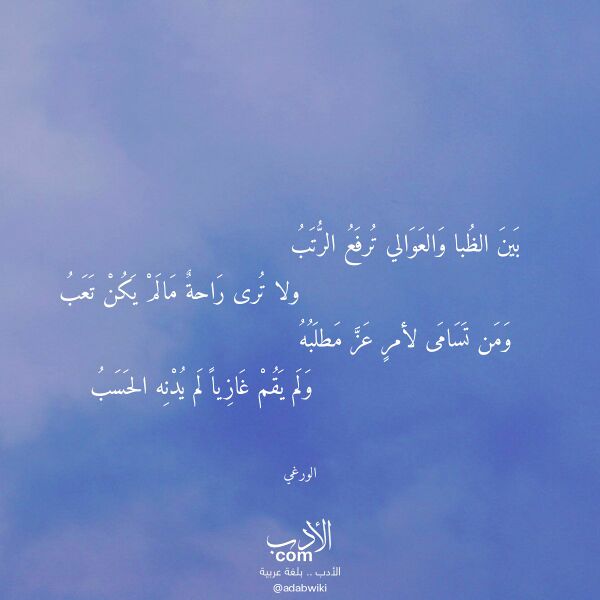 بَينَ الظُبا وَالعَوَالي تُرفَعُ الرُّتَبُ
ولا تُرى رَاحةٌ مَالَمْ يَكُنْ تَعَبُ
وَمَن تَسَامَى لأمرٍ عَزَّ مَطلَبُهُ
وَلَم يَقُمْ غَازِياً لَم يُدْنِه الحَسَبُ
الورغي
الأدب
com
الأدب .. بلغة عربية
@adabwiki